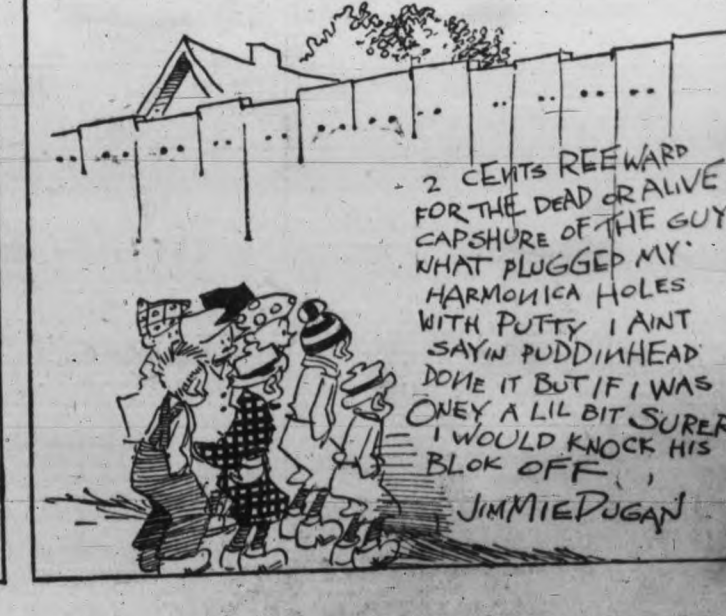 2 CENTS REEWARD
FOR THE DEAD OR ALIVE
CAPSHURE OF THE GUY
WHAT PLUGGED MY
HARMONICA HOLES
WITH PUTTY I AINT
SAYIN PUDDINHEAD
DONE IT BUT IF I WAS
ONEY A LIL BIT SURER
I WOULD KNOCK HIS
BLOK OFF.
JIMMIE DUGAN